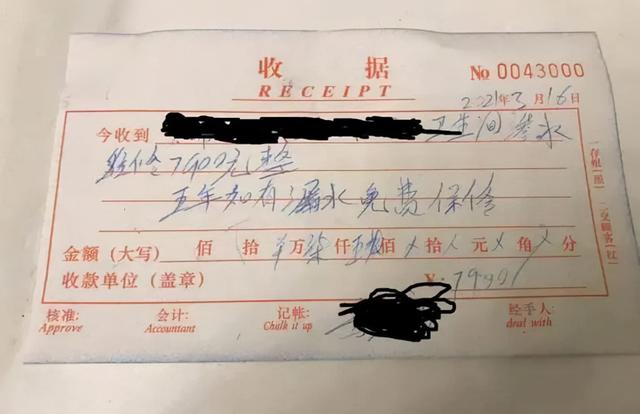 收 据
RECEIPT No 0043000
2021年3月16日
今收到 卫生间渗水
维修7900元整
五年如有漏水免费保修
金额（大写） 佰 拾 万柒仟 佰 拾 元 角 分
收款单位（盖章） ￥: 7900
核准: 会计: 记帐: 经手人:
Approve Accountant Chalk it up deal with
一存根（黑）
二交顾客（红）